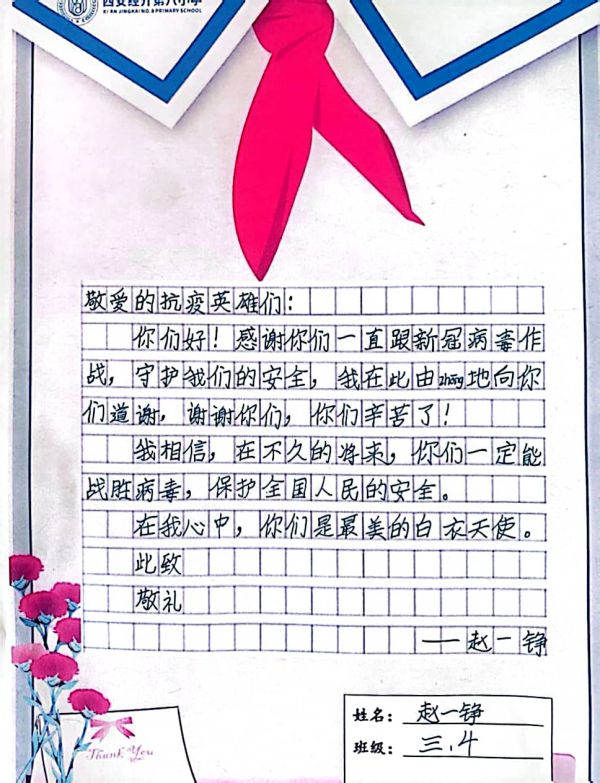 西安经开第八小学
XI'AN JINGKAI NO.8 PRIMARY SCHOOL
敬爱的抗疫英雄们：
你们好！感谢你们一直跟新冠病毒作
战，守护我们的安全，我在此由zhōng地向你
们道谢，谢谢你们，你们辛苦了！
我相信，在不久的将来，你们一定能
战胜病毒，保护全国人民的安全。
在我心中，你们是最美的白衣天使。
此致
敬礼
——赵一铮
姓名：赵一铮
班级：三.4
Thank You